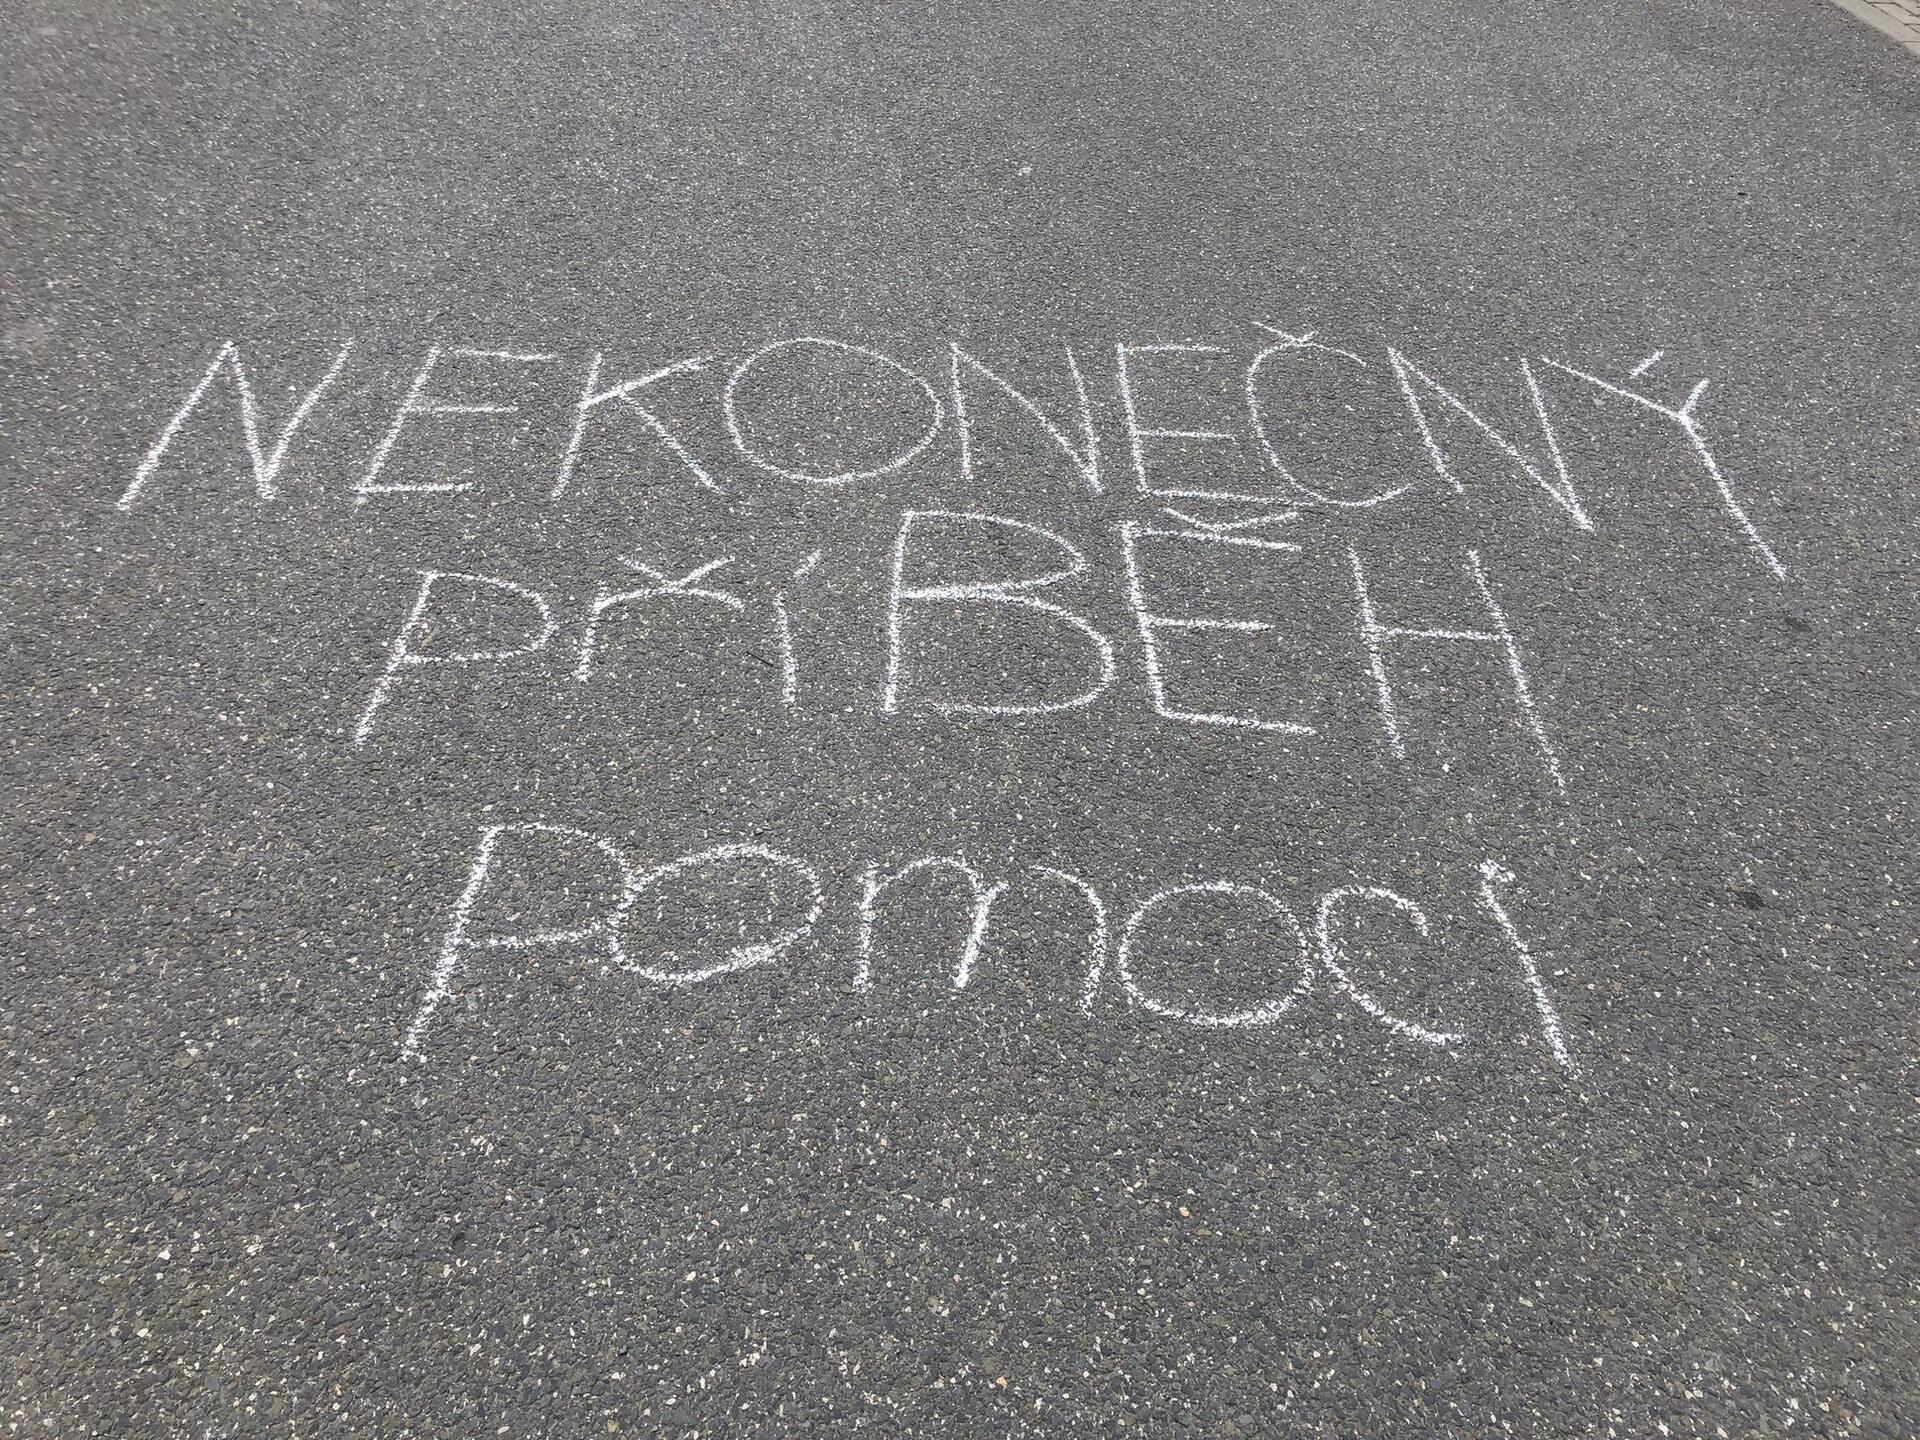 NEKONEČNÝ
PŘÍBĚH
Pomoci